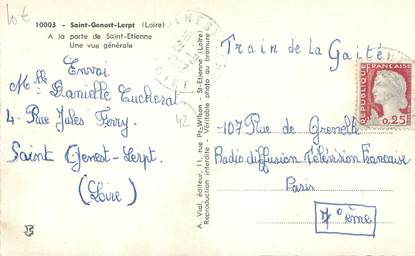 10€
10003 - Saint-Genest-Lerpt (Loire)
A la porte de Saint-Etienne
Une vue générale
Envoi
Mlle Danielle Tucherat
4 - Rue Jules Ferry
Saint Genest-Lerpt
(Loire)
42
A. Vial, éditeur, 11, rue Ps-Wilson, St-Etienne (Loire)
Reproduction interdite - Véritable photo au bromure
LOIRE
REPUBLIQUE FRANÇAISE
0,25
Train de la Gaité
-107 Rue de Grenelle
Radio diffusion Télévision Française
Paris
7°ème